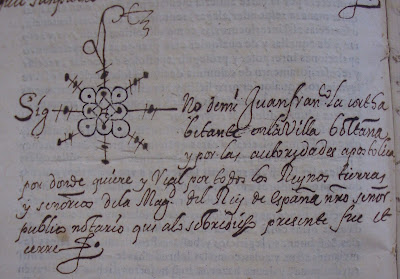 Sig No de mi Juan fran.co la cort ha
bitante en la Villa boltaña
y por las autoridades apostolica
por donde quiere y Real por todos los Reynos tierras
y señorios de la Mag.d del Rey de España nr̃o señor
publico notario que a lo sobredicho presente fue et
cerre